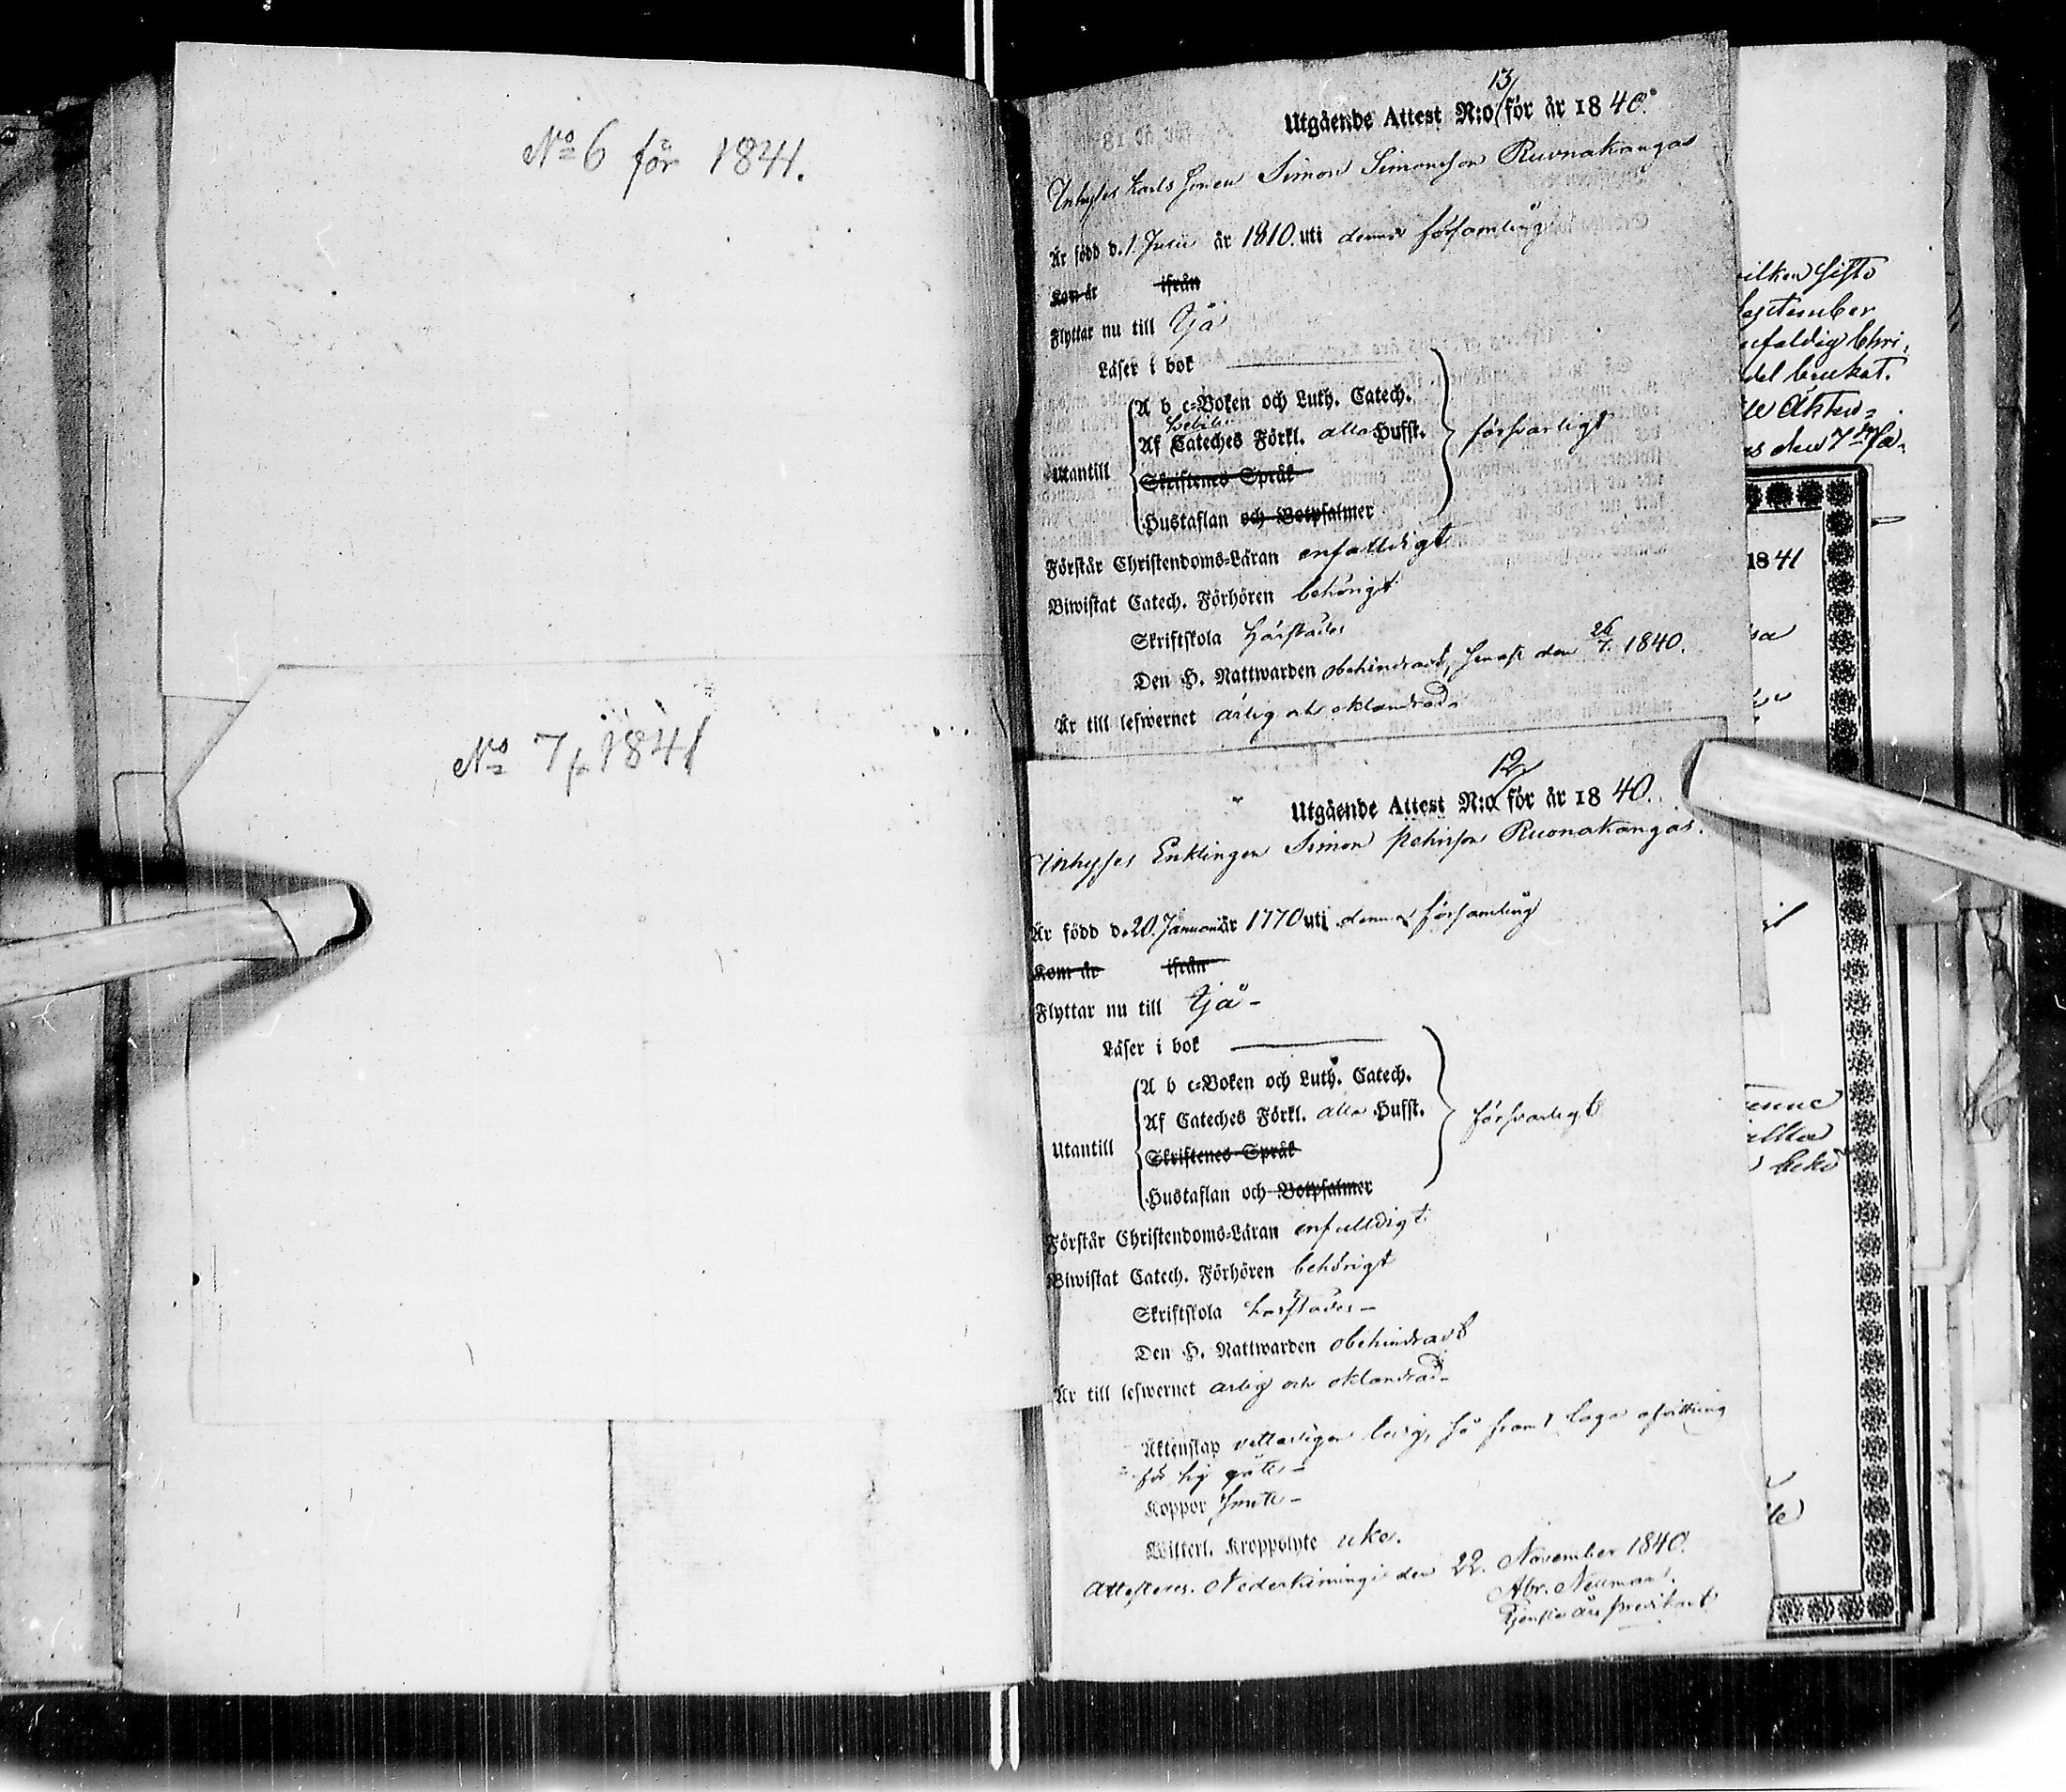 No 6 för 1841.
No 7 f. 1841
13
Utgående Attest N:o för år 1840.
Inhyses Karls Sonen Simon Simonsson Ruonakangas
Är född d. 1 Junii år 1810. uti denna församling
Kom år ifrån
Flyttar nu till Ijå
Läser i bok
A b c-Boken och Luth. Catech.
Af Cateches Förkl. alla Hufst.
försvarligt
Utantill
Skriftenes Språk
Hustaflan och Botpsalmer
Förstår Christendoms-Läran enfaldigt
Biwistat Catech. Förhören behörigt
Skriftskola härstädes
Den H. Nattwarden obehindradt, senast den 26/7. 1840.
Är till lefwernet ärlig och oklandrad.
12
Utgående Attest N:o för år 1840.
Inhyses Enklingen Simon Ruonakangas.
Är född d. 20. Januari år 1770 uti denna församling
Kom år ifrån
Flyttar nu till Ijå -
Läser i bok
A b c-Boken och Luth. Catech.
Af Cateches Förkl. alla Hufst.
försvarligt
Utantill
Skriftenes Språk
Hustaflan och Botpsalmer
Förstår Christendoms-Läran enfalldigt
Biwistat Catech. Förhören behörigt
Skriftskola härstädes -
Den H. Nattwarden obehindradt
Är till lefwernet ärlig och oklandrad -
Äktenskap vetterligen ledig, så framt laga afvittring
för sig
Koppor
Witterl. Kroppslyte icke.
Attesteras. Nederkimingi den 22. November 1840.
Abr. Neuman.
vilken sista
September
enfaldig Chri,
del brukat.
den 7
1841